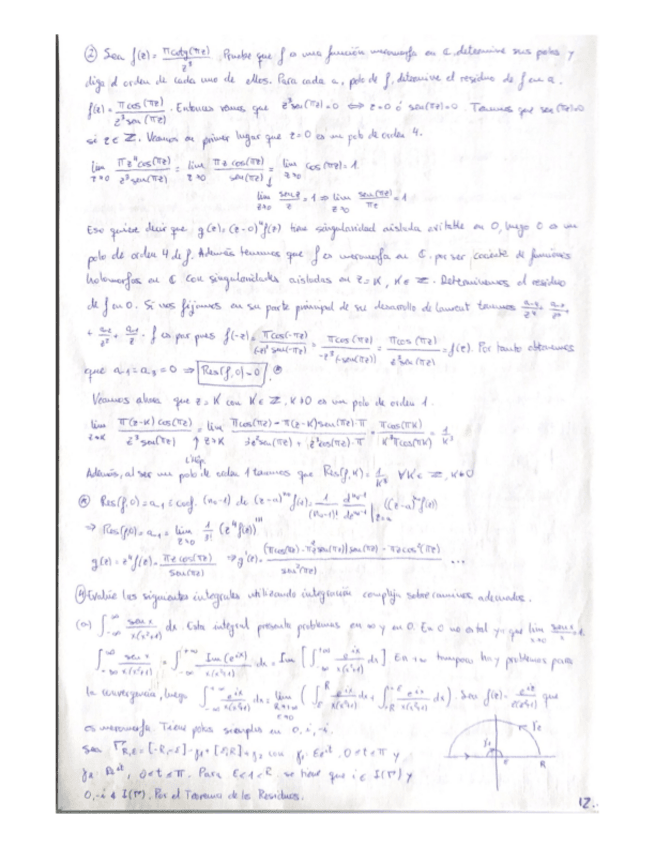 ② Sea f(z) = πcotg(πz)/z³. Pruebe que f es una función meromorfa en ℂ, determine sus polos y
diga el orden de cada uno de ellos. Para cada a, polo de f, determine el residuo de f en a.
f(z) = πcos(πz)/z³sen(πz). Entonces vemos que z³sen(πz)=0 ⟺ z=0 ó sen(πz)=0. Tenemos que sen(πz)=0
si z∈ℤ. Veamos en primer lugar que z=0 es un polo de orden 4.
lim z→0 πz⁴cos(πz)/z³sen(πz) = lim z→0 πz cos(πz)/sen(πz) = lim z→0 cos(πz) = 1.
lim z→0 senz/z = 1 ⇒ lim z→0 sen(πz)/πz = 1
Eso quiere decir que g(z)=(z-0)⁴f(z) tiene singularidad aislada evitable en 0, luego 0 es un
polo de orden 4 de f. Además tenemos que f es meromorfa en ℂ por ser cociente de funciones
holomorfas en ℂ con singularidades aisladas en z=K, K∈ℤ. Determinemos el residuo
de f en 0. Si nos fijamos en su parte principal de su desarrollo de Laurent tenemos a₋₄/z⁴ + a₋₃/z³
+ a₋₂/z² + a₋₁/z. f es par pues f(-z) = πcos(-πz)/(-z)³sen(-πz) = πcos(πz)/-z³(-sen(πz)) = πcos(πz)/z³sen(πz) = f(z). Por tanto obtenemos
que a₋₁=a₋₃=0 ⇒ Res(f,0)=0.
Veamos ahora que z=K con K∈ℤ, K≠0 es un polo de orden 1.
lim z→K π(z-K)cos(πz)/z³sen(πz) = lim z→K πcos(πz)-π(z-K)sen(πz)·π/3z²sen(πz)+z³cos(πz)·π = πcos(πK)/K³πcos(πK) = 1/K³
L'Hôp.
Además, al ser un polo de orden 1 tenemos que Res(f,K)=1/K³ ∀K∈ℤ, K≠0
Res(f,0)=a₋₁ = coef. (n₀-1) de (z-a)ⁿ⁰f(z) = 1/(n₀-1)! dⁿ⁰⁻¹/dzⁿ⁰⁻¹|z=a ((z-a)ⁿ⁰f(z))
⇒ Res(f,0)=a₋₁ = lim z→0 1/3! (z⁴f(z))'''
g(z)=z⁴f(z)=πz cos(πz)/sen(πz) ⇒ g'(z)= (πcos(πz)-π²z sen(πz))sen(πz)-π²z cos²(πz)/sen²(πz) ...
④ Evalúe las siguientes integrales utilizando integración compleja sobre caminos adecuados.
(a) ∫₋∞^+∞ senx/x(x²+1) dx. Esta integral presenta problemas en ∞ y en 0. En 0 no es tal ya que lim x→0 senx/x=1.
∫₋∞^+∞ senx/x(x²+1) = ∫₋∞^+∞ Im(e^ix)/x(x²+1) dx = Im[∫₋∞^+∞ e^ix/x(x²+1) dx]. En +∞ tampoco hay problemas para
la convergencia, luego ∫₋∞^+∞ e^ix/x(x²+1) dx = lim R→+∞ ε→0 (∫ε^R e^ix/x(x²+1) dx + ∫₋R^-ε e^ix/x(x²+1) dx). Sea f(z)=e^iz/z(z²+1) que
es meromorfa. Tiene polos simples en 0, i, -i.
Sea Γ R,ε = [-R,-ε]-γε+[ε,R]+γR con γε: εe^it, 0≤t≤π y
γR: Re^it, 0≤t≤π. Para ε<1<R se tiene que i∈I(Γ) y
0,-i∉I(Γ). Por el Teorema de los Residuos.
γR
γε
ε
R
12.